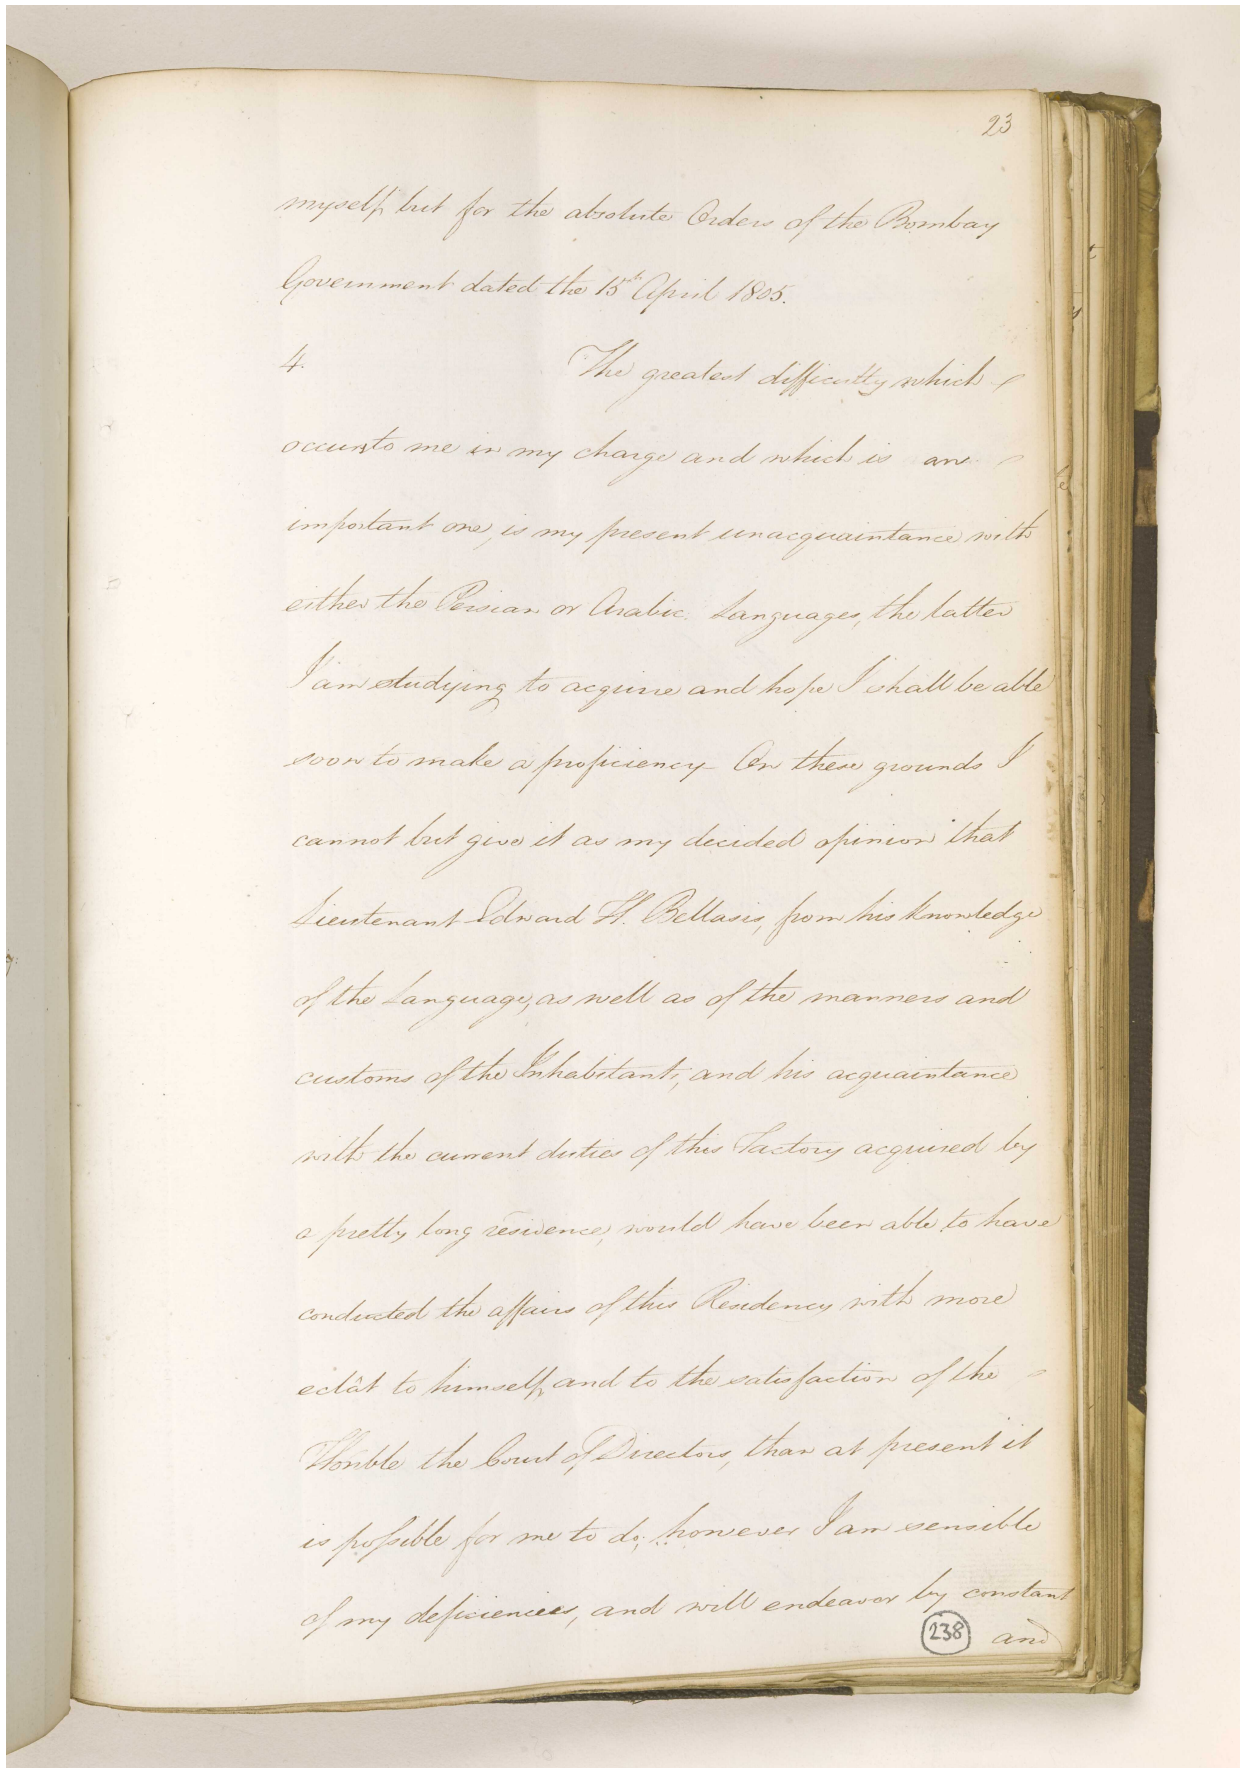 23
myself, but for the absolute Orders of the Bombay
Government dated the 15th April 1805.
4. The greatest difficulty which
occurs to me in my charge and which is an
important one, is my present unacquaintance with
either the Persian or Arabic Languages, the latter
I am studying to acquire and hope I shall be able
soon to make a proficiency - On these grounds I
cannot but give it as my decided opinion that
Lieutenant Edward H. Bellasis, from his knowledge
of the Language, as well as of the manners and
customs of the Inhabitants, and his acquaintance
with the current duties of this Factory acquired by
a pretty long residence, would have been able to have
conducted the affairs of this Residency with more
eclât to himself, and to the satisfaction of the
Honble the Court of Directors, than at present it
is possible for me to do; however I am sensible
of my deficiencies, and will endeavor by constant
238 and